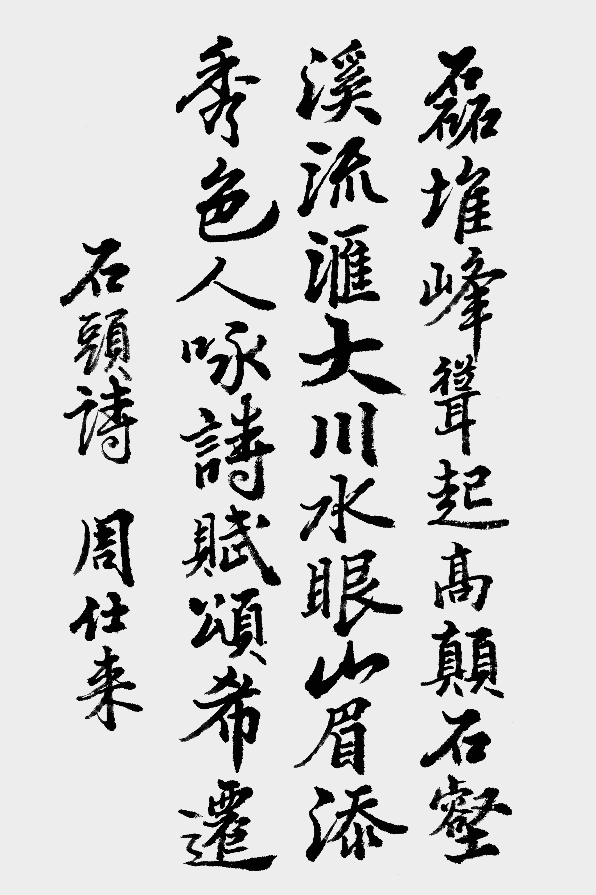 磊堆峰聳起高顛石壑
溪流滙大川水眼山眉添
秀色人咏詩賦頌希遷
石頭詩 周仕来